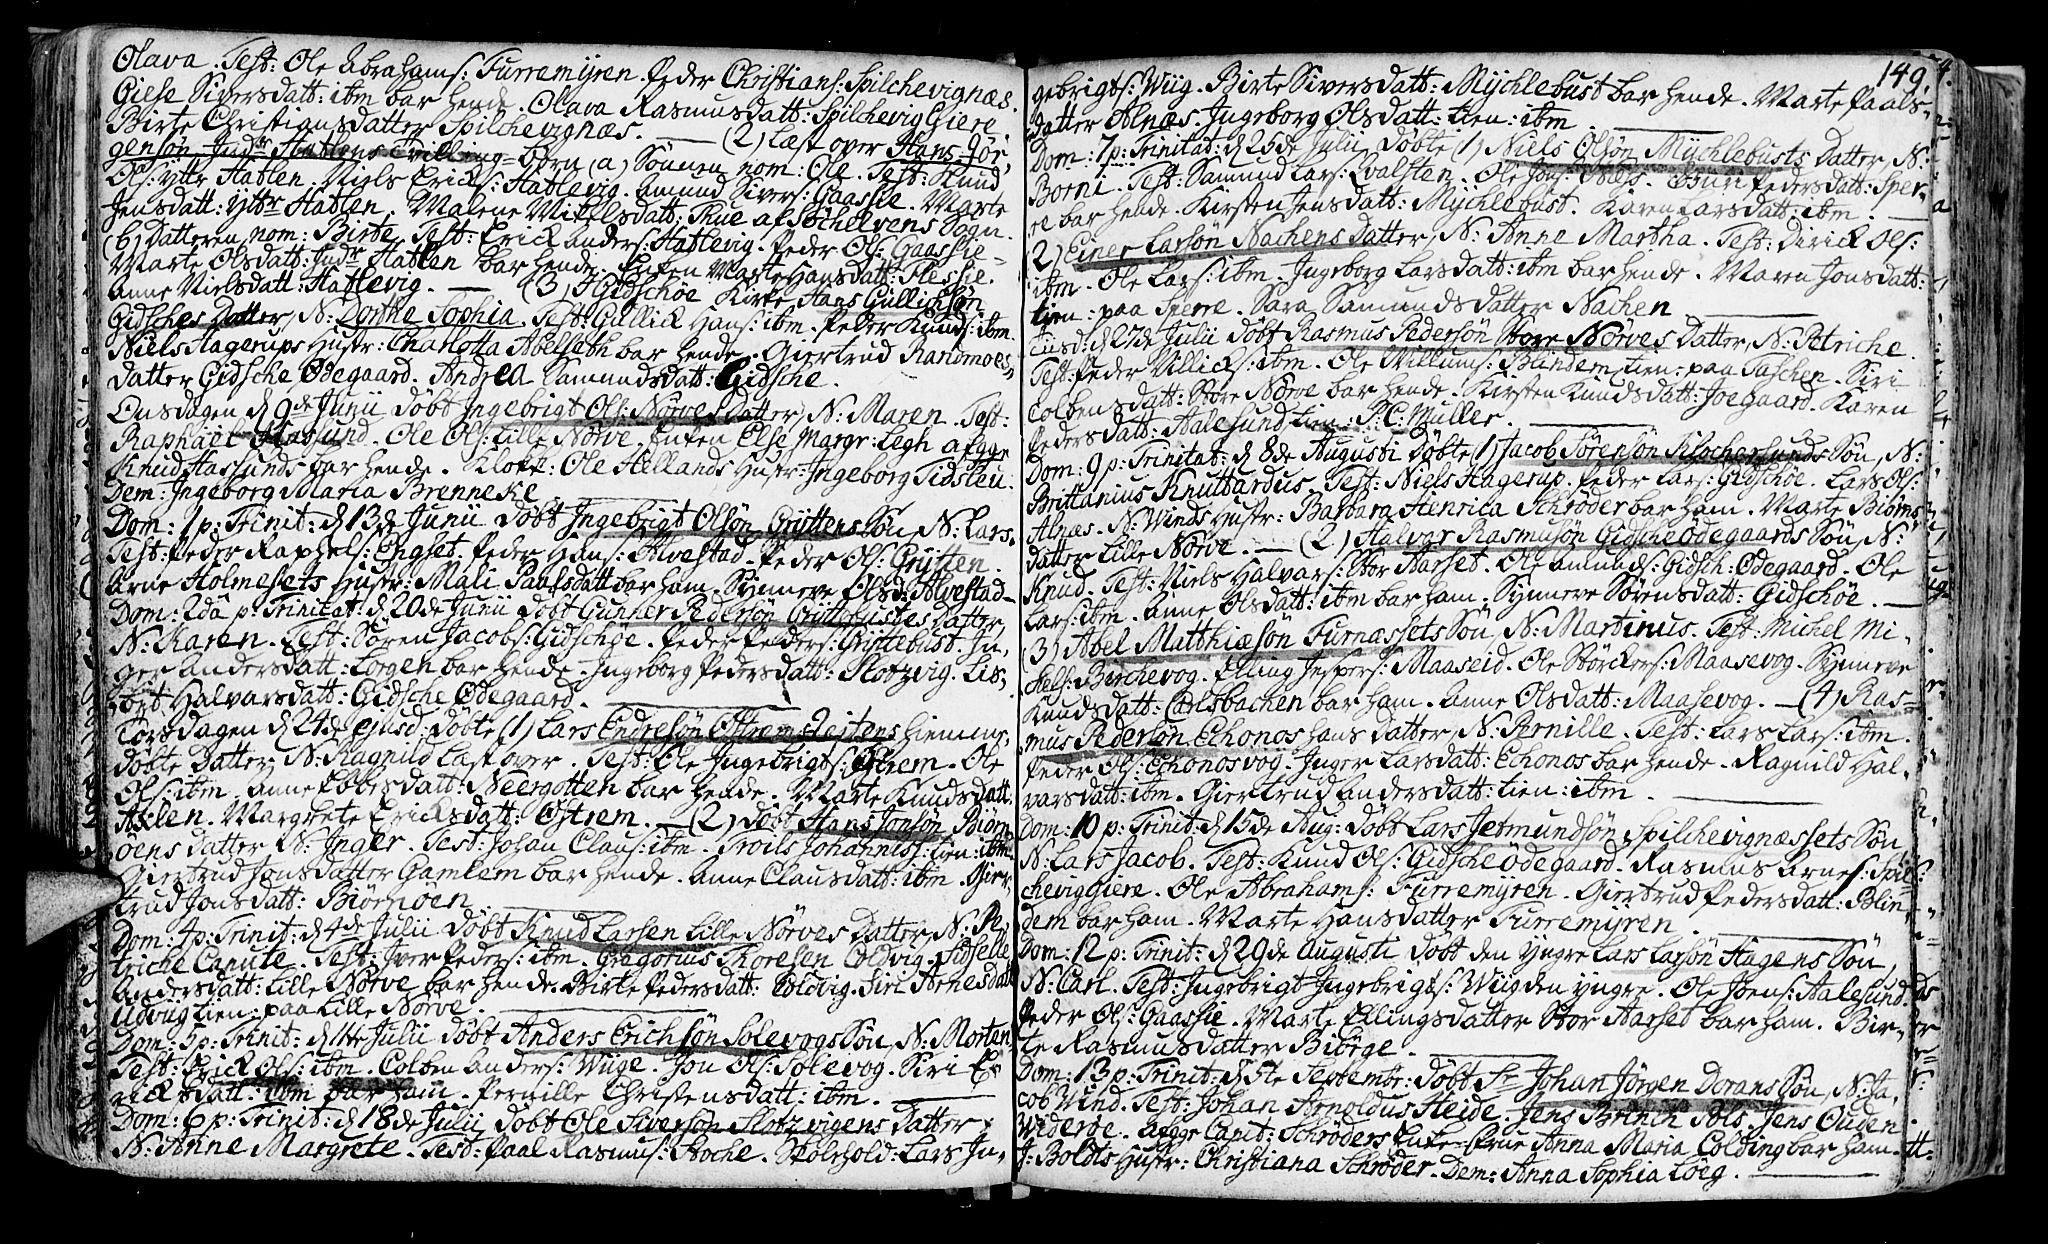 Olava. Test: Ole Abrahams: Furremyren. Peder Christians: Spilchevignæs.
Giese Siversdatt: ibm bar hende. Olava Rasmusdatt: Spilchevig Giere
Birte Christiansdatter Spilchevignæs. — (2) Læst over Hans Jør,
gensøn Indr Hatlens Tvilling-børn (a) Sønnen nom: Ole. Test: Knud
Ols: Yttr Hatlen. Niels Ericks: Hatlevig. Amund Sivers: Gaassie. Marte
Jensdatt: Yttr Hatlen. Malene Mikkelsdatt: Rue af Sogn.
(b) Datteren, nom: Birte. Test: Erick Anders: Hatlevig. Peder Ols: Gaassie-
Marte Olsdatt: Indr Hatlen bar hende. Enken Marte Hansdatt: Flessie.
Anne Nielsdatt: Hatlevig. — (3) I Gidschøe Kirke Hans Gullichsøn
Gidsches Datter, N: Dorthe Sophia. Test: Gullick Hans: ibm. Peder Knuds: ibm.
Niels Hagerups Hustr: Charlotta Abelseth bar hende. Giertrud Randmoes,
datter Gidsche Ødegaard. Andrea Samundsdatt: Gidsche.
Onsdagen d 9de Junii døbt Ingebrigt Ols: Nørves Datter, N: Maren. Test:
Raphael Haslund. Ole Ols: Lille Nørve. Enken Else Margr: Ligh afgge
Knud Haslunds bar hende. Klokk: Ole Hellands Hustr: Ingeborg Tidsleu.
Dem: Ingeborg Maria Brenneke
Dom: 1 p: Trinit: d 13de Junii døbt Ingebrigt Olsøn Gryttens Søn N: Lars.
Test: Peder Raphels: Engset. Peder Hans: Alvestad. Peder Ols: Grytten.
Arne Holmesets Hustr: Mali Paalsdatt bar ham. Synneve Olsd: Alvestad
Dom: 2da p: Trinitat: d 20de Junii døbt Gunner Pedersøn Datter,
N: Karen. Test: Søren Jacobs: Gidschøe. Peder Peders: Gristebust. In,
ger Andersdatt: Longen bar hende. Ingeborg Pedersdatt: Slotzvig. Lis,
bet Halvarsdatt: Gidsche Ødegaard.
Torsdagen d 24de ejusd: døbte (1) Lars Endresøn Østrem Leitens hiemme,
døbte Datter, N: Ragnild Læst over. Test: Ole Ingebrigts: Østrem. Ole
Ols: ibm. Anne Ebbesdatt: Neergotten bar hende. Marte Knudsdatt
Axlen. Margrete Ericksdatt: Østrem. — (2) døbt Hans Jonsøn Biørn
øens Datter N: Inger. Test: Johan Claus: ibm. Troils Johannis: tien: ibm.
Giertrud Jonsdatter Gamlem bar hende. Anne Clausdatt: ibm. Gier,
trud Jonsdatt: Biørnøen
Dom: 4 p: Trinit: d 4de Julii døbt Knud Larsen Lille Nørves Datter, N: Pe,
triche Canute. Test: Iver Peders: ibm. Gregorius Thoresen Coldvig. Zidselle
Andersdatt: Lille Nørve bar hende. Birte Pedersdatt: Coldvig. Siri Arnesdatt
Udvug tien: paa Lille Nørve.
Dom: 5 p: Trinit: d 11te Julii døbt Anders Erichsøn Solevogs Søn, N: Morten,
Test: Erick Ols: ibm. Colben Anders: Wiige. Jon Ols: Solevog. Siri E,
ricksdatt: ibm bar ham. Pernille Christensdatt: ibm.
Dom: 6 p: Trinit: d 18de Julii døbt Ole Siversøn Slotzvigens Datter
N: Anne Margrete. Test: Paal Rasmus: Stoche. Skølhold: Lars In,
149.
gebrigts: Wiig. Birte Siversdatt: Mychlebust bar hende. Marte Paals-
datter Alnæs. Ingeborg Olsdatt: tien: ibm
Dom: 7 p: Trinitat: d 25de Julii døbte (1) Niels Olsøn Mychlebusts Datter, N:
Borni. Test: Samund Lars: Qvalsten. Ole Jons: Næss. Guri Pedersdatt: Sper-
re bar hende. Kirsten Jensdatt: Mychlebust. Karen Larsdatt: ibm.
2) Einer Larsøn Nachens Datter, N: Anne Martha. Test: Dirick Ols:
ibm. Ole Lars: ibm. Ingeborg Larsdatt: ibm bar hende. Maren Jonsdatt:
tien: paa Sperre. Sara Samundsdatter Nachen
Tiisd: d 27de Julii døbt Rasmus Pedersøn Store Nørves Datter, N: Petriche.
Test: Peder Ullicks: ibm. Ole Willums: Blindem, tien: paa Taschen. Siri
Colbensdatt: Store Nørve bar hende. Kirsten Knudsdatt: Joegaard. Karen
Pedersdatt: Aalesund tien: P: C: Müller.
Dom: 9 p: Trinitat: d 8de Augusti døbte (1) Jacob Sørensøn Søn, N:
Brittanius Knuttardus. Test: Niels Hagerup. Peder Lars: Gidschøe. Lars Ols:
Alnæs. N: Winds Hustr: Barbara Henrica Schrøder bar ham. Marte Biørns
datter Lille Nørve. — (2) Halvar Rasmusøn Gidsche Ødegaards Søn, N:
Knud. Test: Niels Halvars: Stor Aarset. Ole Amunds: Gidsch: Ødegaard. Ole
Lars: ibm. Anne Olsdatt: ibm bar ham. Synneve Sørensdatt: Gidschøe. —
(3) Abel Matthiæsøn Furnassets Søn, N: Martinus. Test: Michel Mi-
kels: Birchevog. Elling Jespers: Maaseid. Ole Størckers: Maasevog. Synneve
Knudsdatt: Carlsbachen bar ham. Anne Olsdatt: Maasevog. — (4) Ras-
mus Pedersøn Echonos hans Datter, N: Pernille. Test: Lars Lars: ibm.
Peder Ols: Echonosvog. Inger Larsdatt: Echonos bar hende. Ragnild Hal,
varsdatt: ibm. Giertrud Andersdatt: tien: ibm
Dom: 10 p: Trinit: d 15de Aug: døbt Lars Jetmundsøn Spilchevignæssets Søn
N: Lars Jacob. Test: Knud Ols: Gidsche Ødegaard. Rasmus Arnes: Spil-
cheviggiere. Ole Abrahams: Furremyren. Giertrud Pedersdatt: Blin,
dem bar ham. Marte Hansdatter Furremyren.
Dom: 12 p: Trinit: d 29de Augusti døbt den yngre Lars Larsøn Hagens Søn,
N: Carl. Test: Ingebrigt Ingebrigts: Wiig den yngre. Ole Joens: Aalesund.
Peder Ols: Gaassie. Marte Ellingsdatter Stor Aarset bar ham. Bir-
te Rasmusdatter Biørge.
Dom: 13 p: Trinit: d 5te Septembr: døbt Sr Johan Jørgen Dorans Søn, N: Ja,
cob Wind. Test: Johan Arnoldus Heide. Jens Brinch Pols. Jens Ouden
Widerøe. Afgge Capit: Schrøders Enke-Frue Anna Maria Colding bar ham.
J: Boldts Hustr: Christiana Schrøder. Dem: Anna Sophia Løeg.